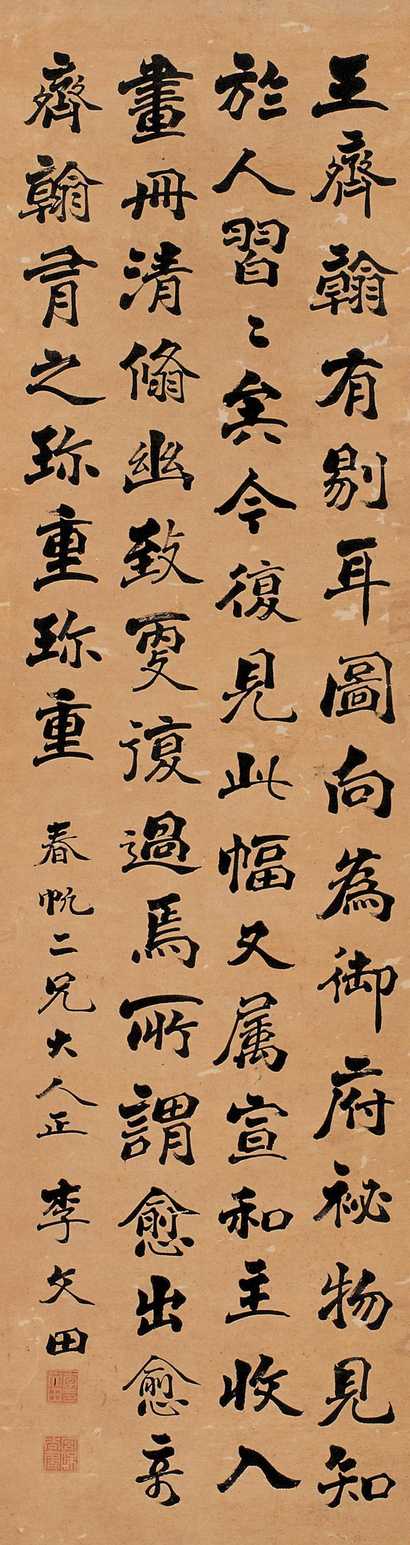 王齊翰有剔耳圖向為御府祕物見知
於人習〻矣今復見此幅又属宣和主收入
畫冊清脩幽致更復過焉所謂愈出愈奇
齊翰有之珎重珎重
春帆二兄大人正
李文田